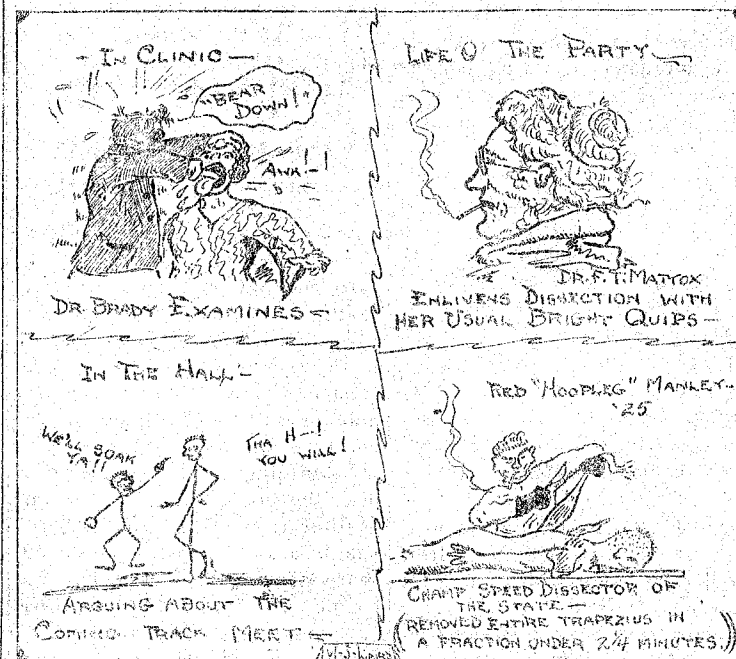 - IN CLINIC -
"BEAR
DOWN!"
AWK!-!
DR. BRADY EXAMINES -
LIFE O' THE PARTY -
DR. F. T. MATTOX
ENLIVENS DISSECTION WITH
HER USUAL BRIGHT QUIPS -
IN THE HALL -
WE'LL SOAK
YA!!
THA H--!
YOU WILL!
ARGUING ABOUT THE
COMING TRACK MEET -
RED "HOOPLEG" MANLEY -
'25
CHAMP SPEED DISSECTOR OF
THE STATE -
(REMOVED ENTIRE TRAPEZIUS IN
A FRACTION UNDER 2 1/4 MINUTES.)